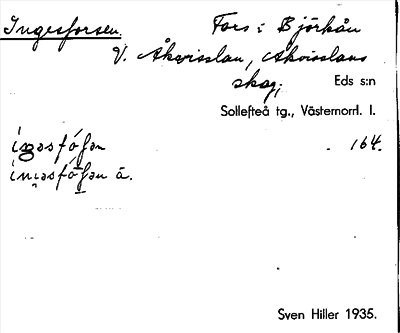 Ingesforsen. Fors i Björkån
V. Åkvisslan, Åkvisslans
skog, Eds s:n
Sollefteå tg., Västernorrl. l.
íŋəsfó̱ʃən . 164.
íŋəsfó̱ʃən å.
Sven Hiller 1935.